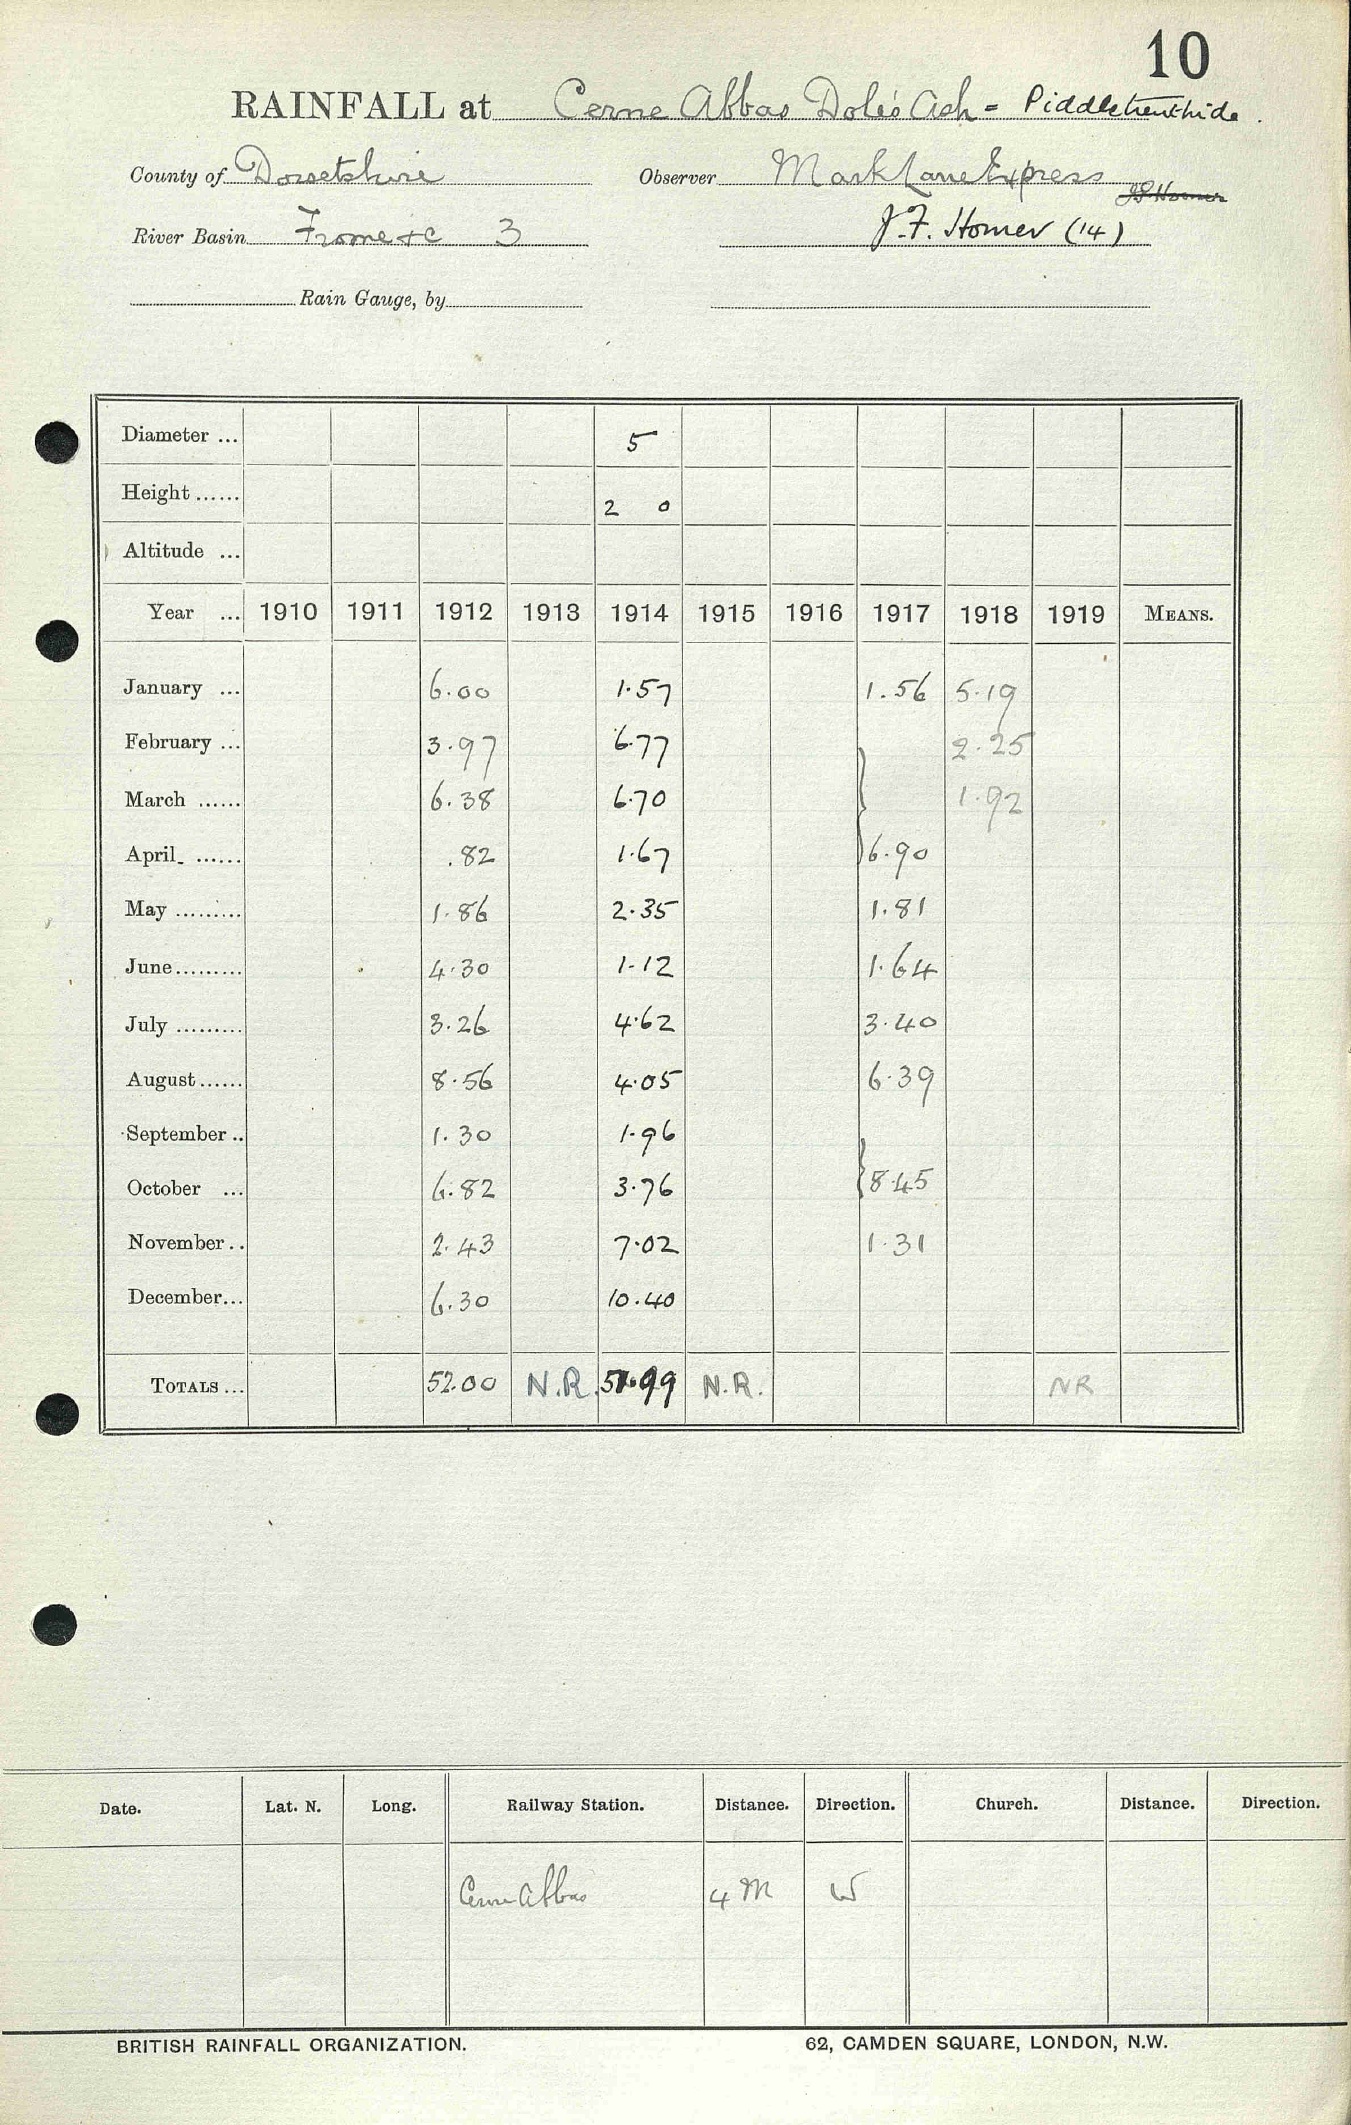 10
RAINFALL at Cerne Abbas Dole's Ash = Piddletrenthide.
County of Dorsetshire Observer Mark Lane Express
River Basin Frome &c 3 J. F. Homer (14)
Rain Gauge, by
Diameter ... 5
Height ...... 2 0
Altitude ...
Year ... 1910 1911 1912 1913 1914 1915 1916 1917 1918 1919 MEANS.
January ... 6.00 1.57 1.56 5.19
February ... 3.97 6.77 2.25
March ...... 6.38 6.70 1.92
April ...... .82 1.67 6.90
May ......... 1.86 2.35 1.81
June......... 4.30 1.12 1.64
July ......... 3.26 4.62 3.40
August...... 8.56 4.05 6.39
September .. 1.30 1.96
October ... 6.82 3.76 8.45
November .. 2.43 7.02 1.31
December... 6.30 10.40
TOTALS ... 52.00 N.R. 51.99 N.R. NR
Date. Lat. N. Long. Railway Station. Distance. Direction. Church. Distance. Direction.
Cerne Abbas 4 M W
BRITISH RAINFALL ORGANIZATION. 62, CAMDEN SQUARE, LONDON, N.W.